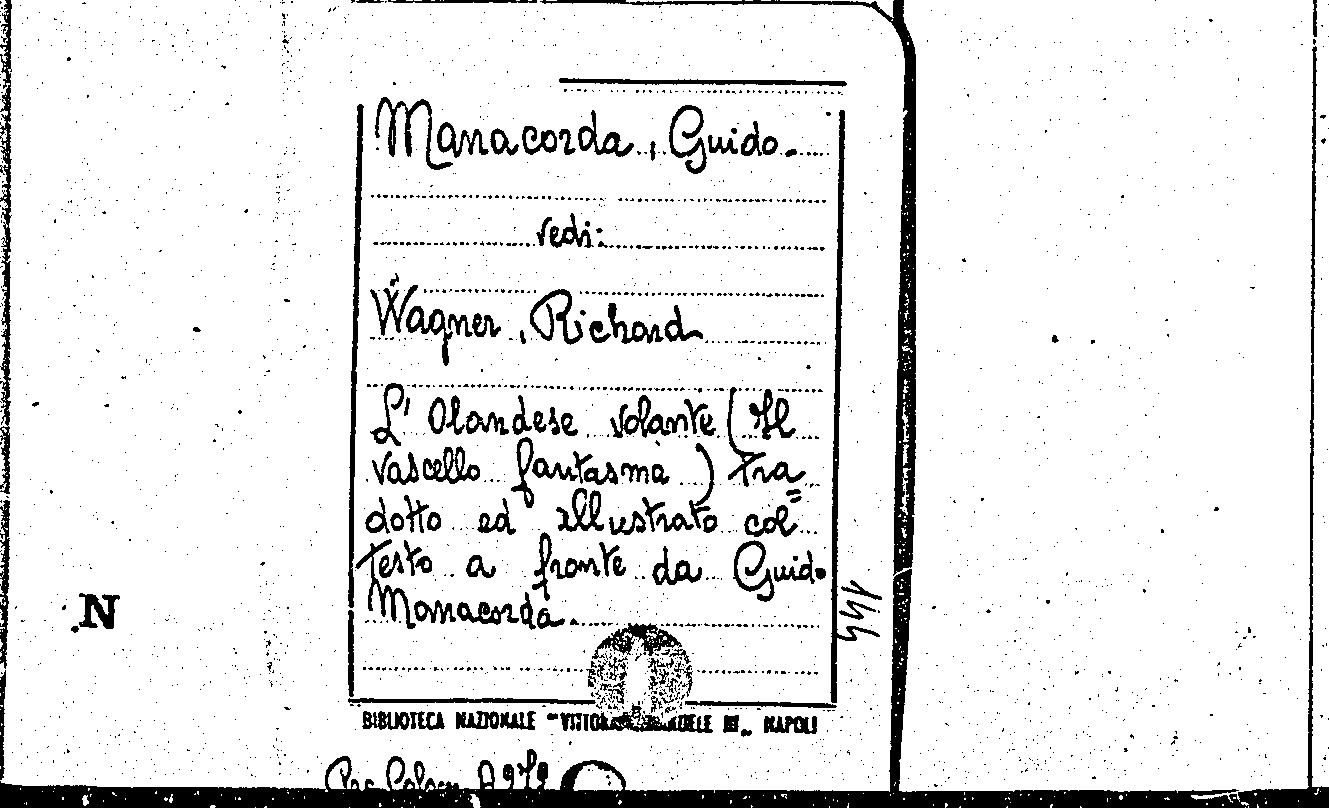 Manacorda, Guido.
vedi:
Wagner, Richard
L'Olandese volante (Il
vascello fantasma) tra=
dotto ed illustrato col
testo a fronte da Guido
Manacorda.
N
BIBLIOTECA NAZIONALE "VITTORIO EMANUELE III" NAPOLI